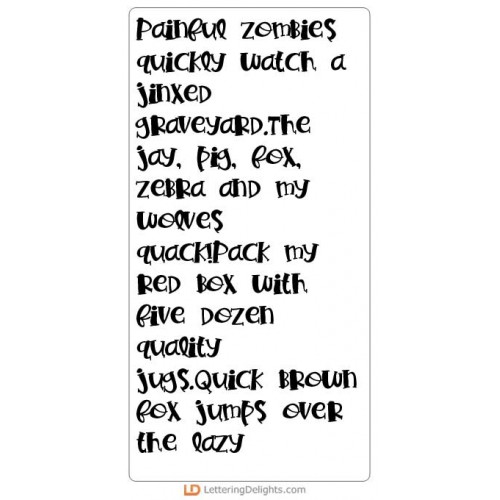 Painful zombies
quickly watch a
jinxed
graveyard.The
jay, pig, fox,
zebra and my
wolves
quack!Pack my
red box with
five dozen
quality
jugs.Quick brown
fox jumps over
the lazy
LD LetteringDelights.com